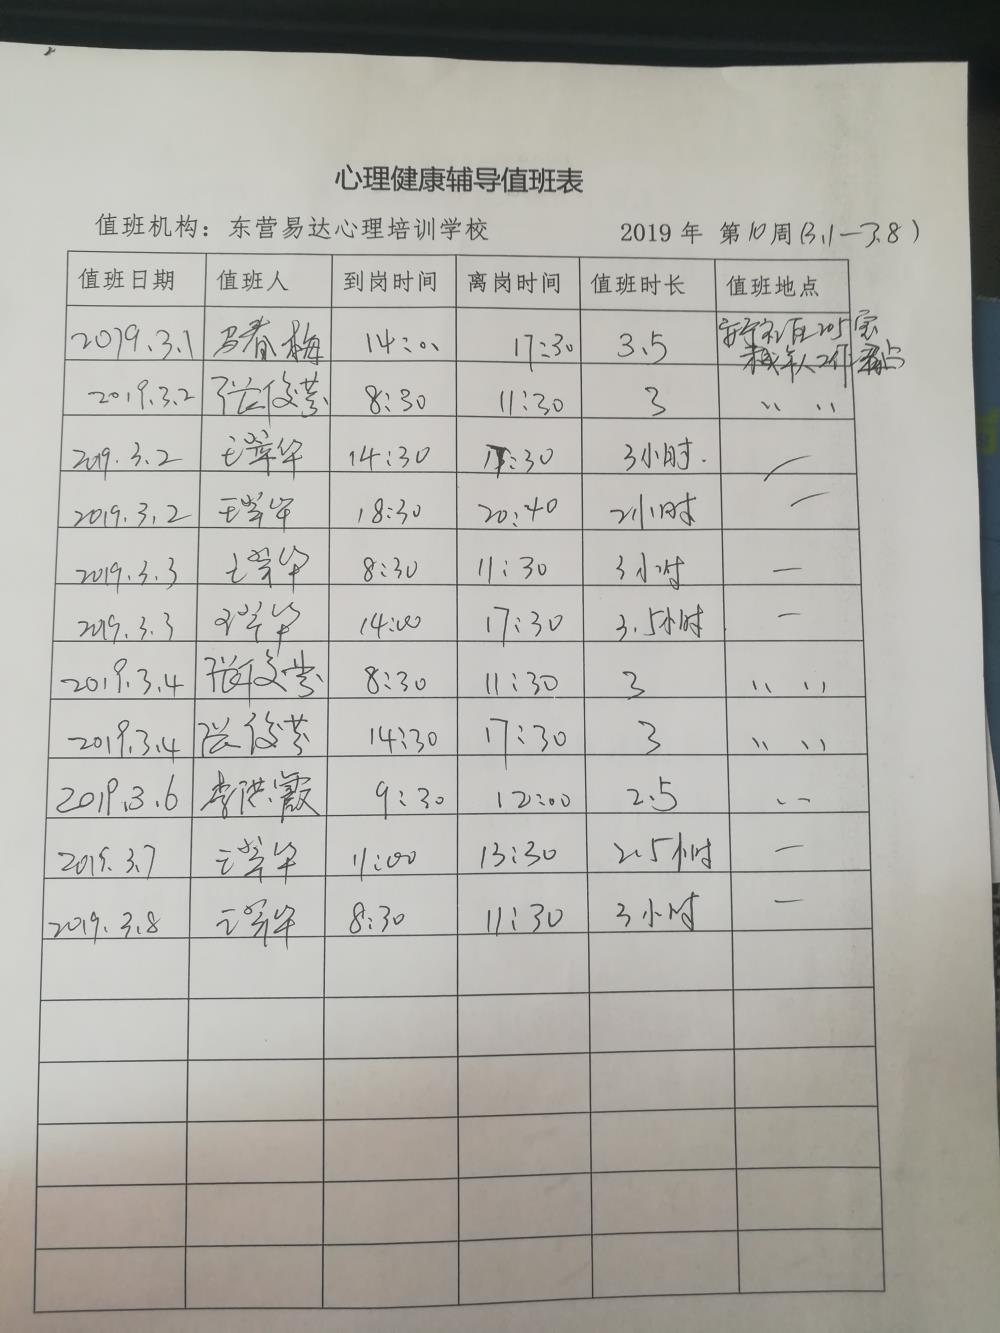 心理健康辅导值班表
值班机构：东营易达心理培训学校 2019 年 第10周(3.1—3.8)
值班日期 值班人 到岗时间 离岗时间 值班时长 值班地点
2019.3.1 马春梅 14:00 17:30 3.5 205室
未成年人工作站
2019.3.2 张俊芬 8:30 11:30 3 〃 〃
2019.3.2 王翠华 14:30 17:30 3小时. —
2019.3.2 18:30 20:40 2小时 —
2019.3.3 8:30 11:30 3小时 —
2019.3.3 14:00 17:30 3.5小时 —
2019.3.4 张俊芬 8:30 11:30 3 〃 〃
2019.3.4 张俊芬 14:30 17:30 3 〃 〃
2019.3.6 李洪霞 9:30 12:00 2.5 〃
2019.3.7 11:00 13:30 2.5小时 —
2019.3.8 8:30 11:30 3小时 —